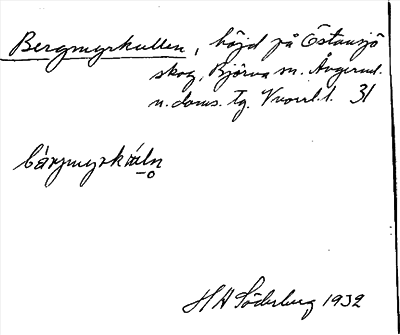 Bergmyrkullen, höjd på Östansjö
skog, Björna sn. Ångerml.
n. doms. tg. Vnorrl. l. 31
bärjmyrkùln
H H Söderberg 1932